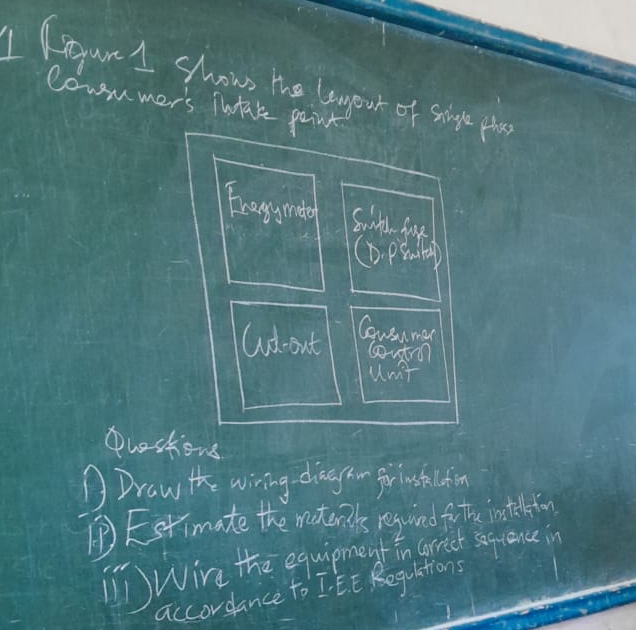 1 Figure 1 shows the layout of single phase
Consumer's intake point.
Energy meter
Switch fuse
(D.P Switch)
Cut-out
Consumer
Control
Unit
Questions
i) Draw the wiring-diagram for installation
ii) Estimate the materials required for the installation
iii) Wire the equipment in correct sequence in
accordance to I.E.E Regulations